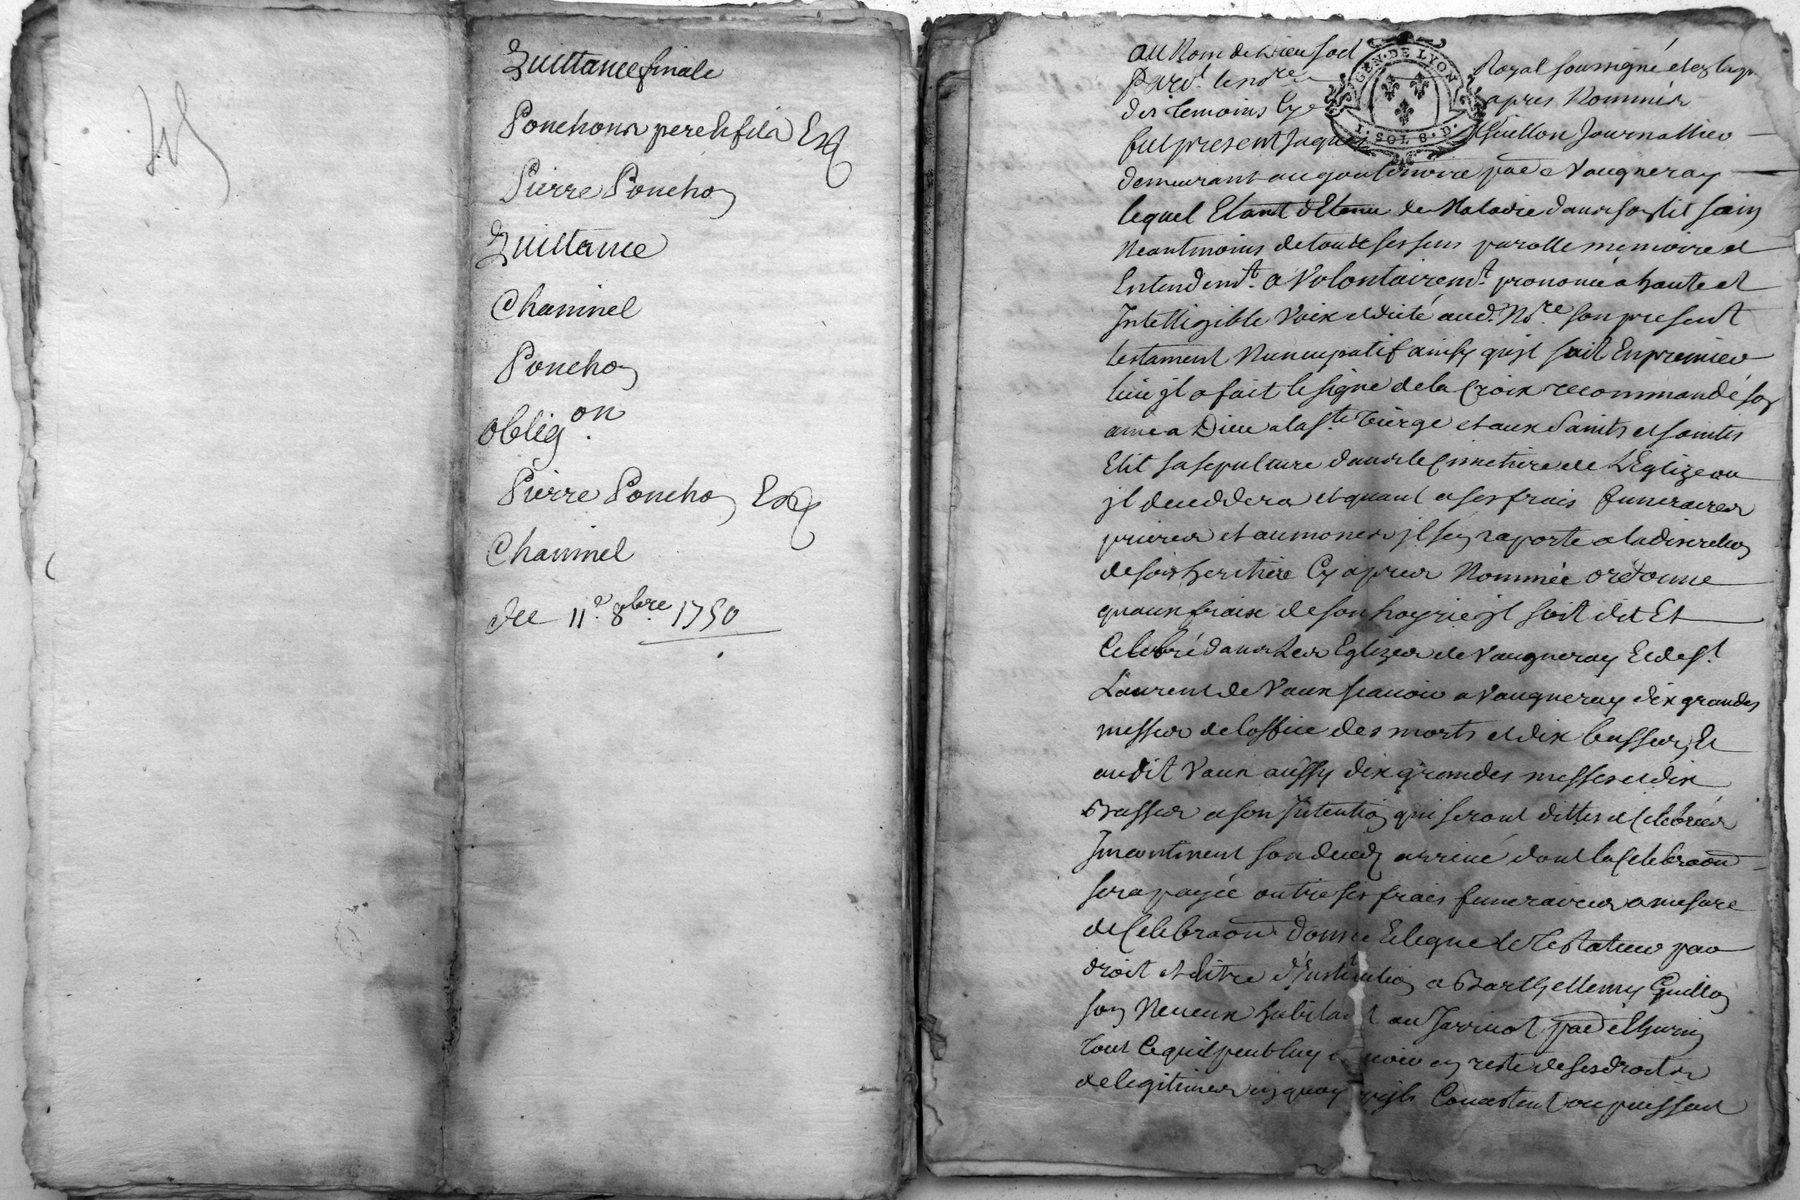 Quittance finale
Ponchons pere et fils
Pierre Ponchon
Quittance
Chaninel
Ponchon
Oblig.on
Pierre Ponchon
Chaninel
Du 11e 8bre 1750
GEN. DE LYON
I. SOL 8. D.
Au Nom de Dieu soit
Royal soussigné et
des temoins Cy
apres Nommés
fut present Jaques Guillon Journallier
demeurant au parr. de Vaugneray
lequel Etant détenu de Maladie dans son lit sain
Neantmoins de tous ses sens parolle memoire et
Entendemt. a Volontairemt. prononcé a haute et
Intelligible Voix et dicté aud. Nore. son present
testament Nuncupatif ainsy qu'jl suit En premier
lieu jl a fait le signe de la Croix recommandé son
ame a Dieu a la ste Vierge et aux Saints et saintes
Elit sa sepulture dans le Cimetiere de L'Eglize ou
jl deceddera et quant a ses frais funeraires
prieres et aumones jl s'en raporte a la discretion
de son heritiere Cy apres Nommée ordonne
quaux fraix de son hoyrie jl soit dit Et
Celebré dans Les Eglizes de Vaugneray Et de st.
Laurent de Vaux scavoir a Vaugneray dix grandes
messes de loffice des morts et dix basses, Et
audit Vaux aussy dix grandes messes et dix
Basses a son Intention qui seront dittes et Celebrées
Incontinent son deced arrivé dont la Celebraõn
sera payée outre ses frais funeraires a mesure
de Celebraõn Donne et legue le Testateur par
droit et titre d'Institution a Barthellemy Guillon
son Neveux habitant au parr. de
tout Ce qu'il peut luy en reste de ses droits
de legitimes en quoy qu'jls Consistent ou puissent